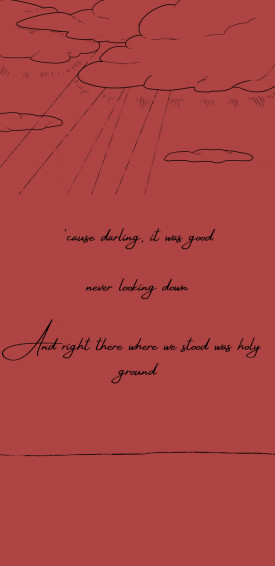 'cause darling, it was good
never looking down
And right there where we stood was holy
ground